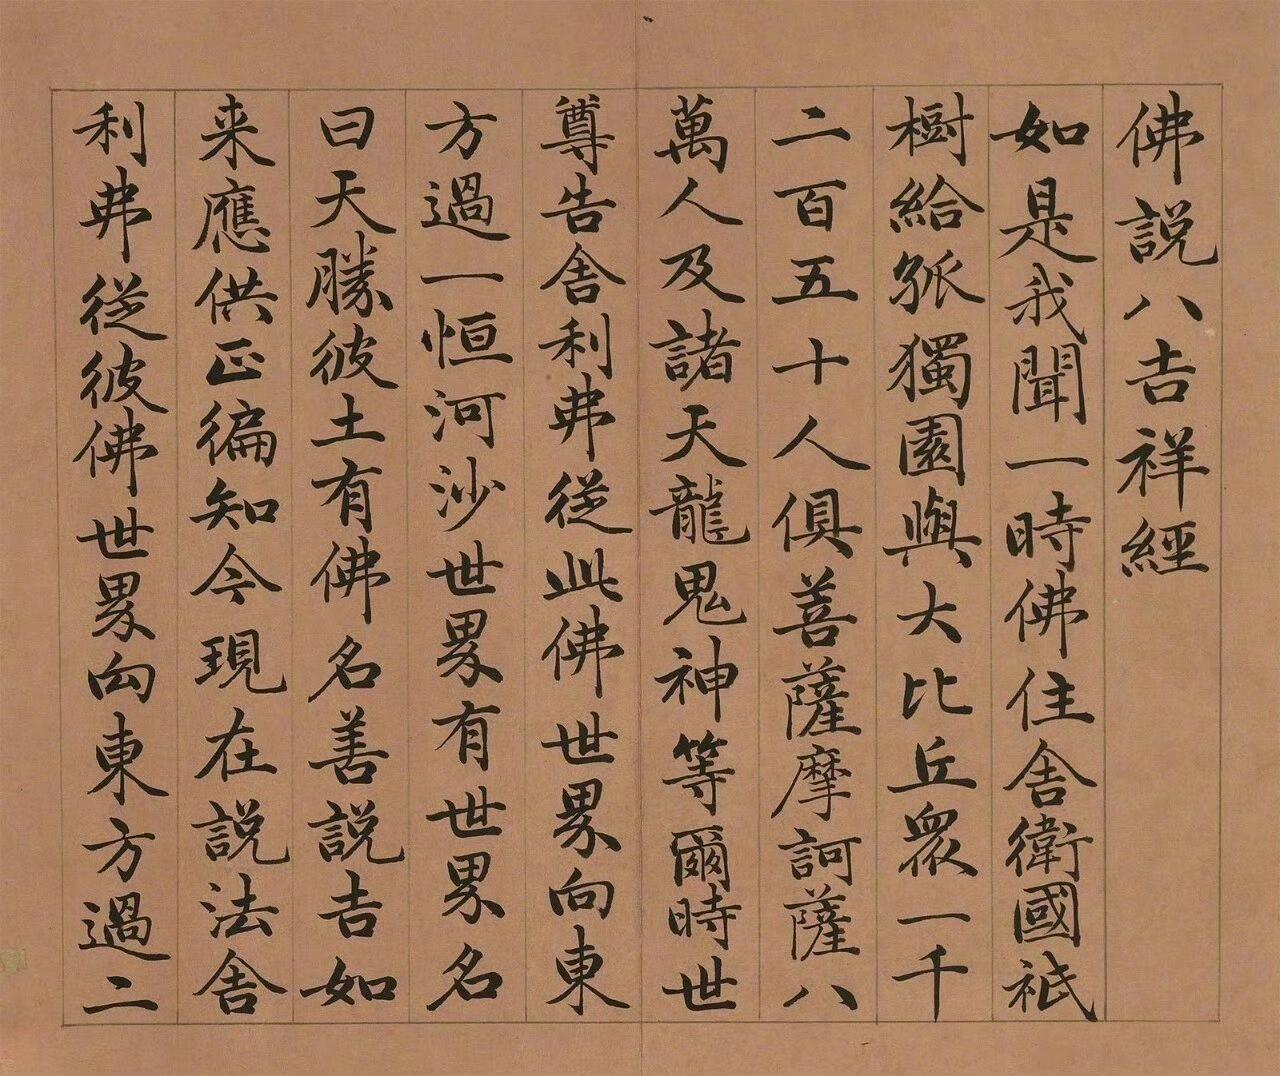 佛説八吉祥經
如是我聞一時佛住舎衛國祇
樹給孤獨園與大比丘眾一千
二百五十人俱菩薩摩訶薩八
萬人及諸天龍鬼神等爾時世
尊告舎利弗從此佛世界向東
方過一恒河沙世界有世界名
曰天勝彼土有佛名善説吉如
来應供正徧知今現在説法舎
利弗從彼佛世界向東方過二